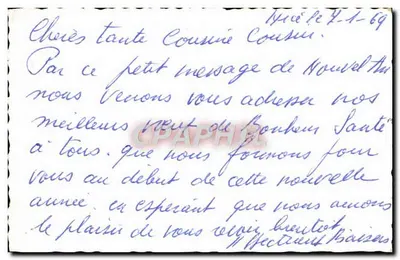 le 7-1-69
Cheres tante Cousine Cousin.
Par ce petit message de Nouvel An
nous venons vous adresser nos
meilleurs vœut de Bonheur Santé
à tous. que nous formons pour
vous au debut de cette nouvelle
année. en espérant que nous aurons
le plaisir de vous revoir bientot
Affectueux Baisers